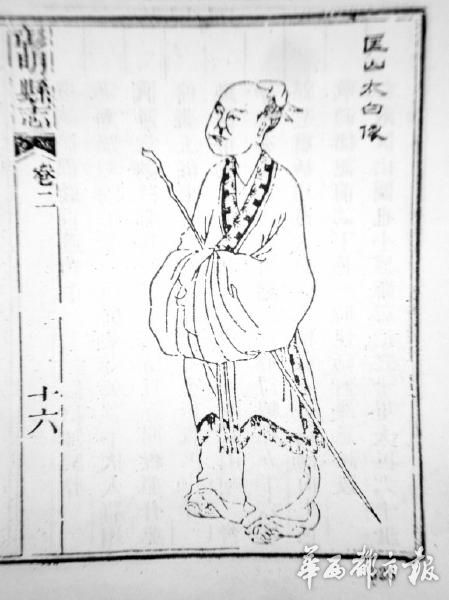 匡山太白像
彰明縣志
卷二
十六
華西都市報